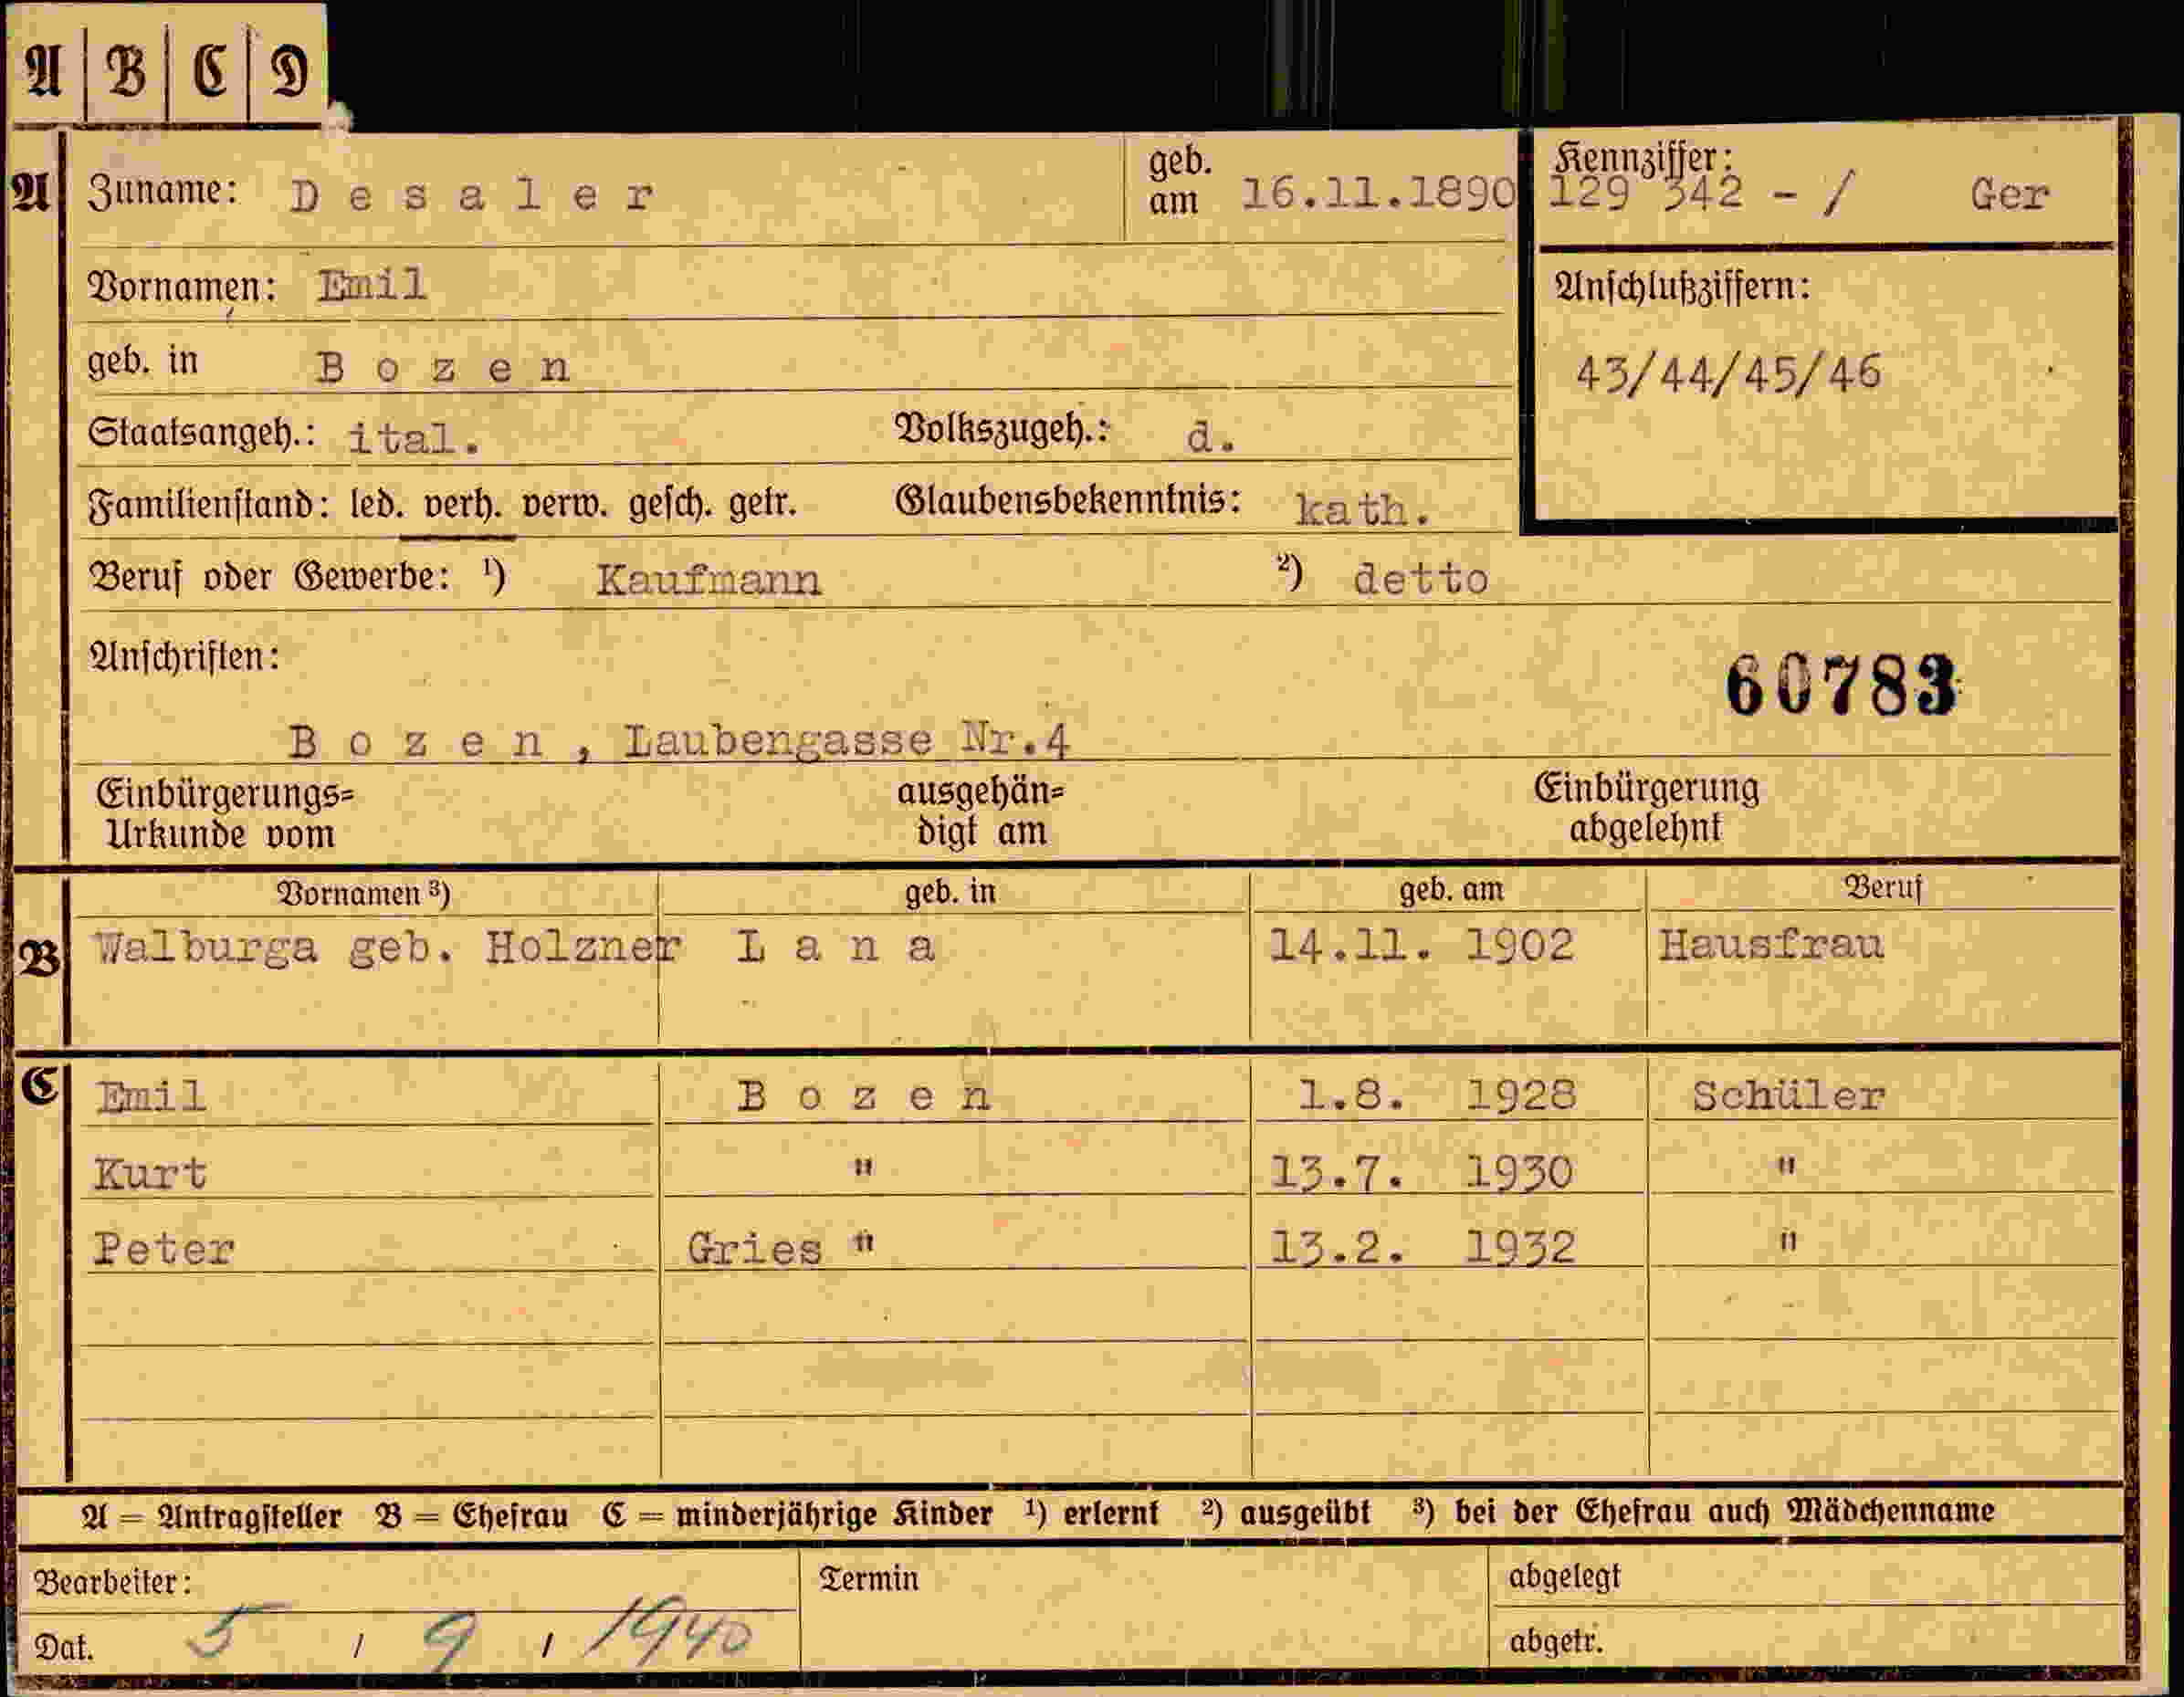 A | B | C | D
A Zuname: D e s a l e r geb. am 16.11.1890 Kennziffer: 129 342 - / Ger
Vornamen: Emil Anschlußziffern:
geb. in B o z e n 43/44/45/46
Staatsangeh.: ital. Volkszugeh.: d.
Familienstand: led. verh. verw. gesch. getr. Glaubensbekenntnis: kath.
Beruf oder Gewerbe: ¹) Kaufmann ²) detto
Anschriften: 60783
B o z e n , Laubengasse Nr.4
Einbürgerungs= ausgehän= Einbürgerung
Urkunde vom digt am abgelehnt
Vornamen ³) geb. in geb. am Beruf
B Walburga geb. Holzner L a n a 14.11. 1902 Hausfrau
C Emil B o z e n 1.8. 1928 Schüler
Kurt " 13.7. 1930 "
Peter Gries " 13.2. 1932 "
A = Antragsteller B = Ehefrau C = minderjährige Kinder ¹) erlernt ²) ausgeübt ³) bei der Ehefrau auch Mädchenname
Bearbeiter: Termin abgelegt
Dat. 5 / 9 / 1940 abgetr.